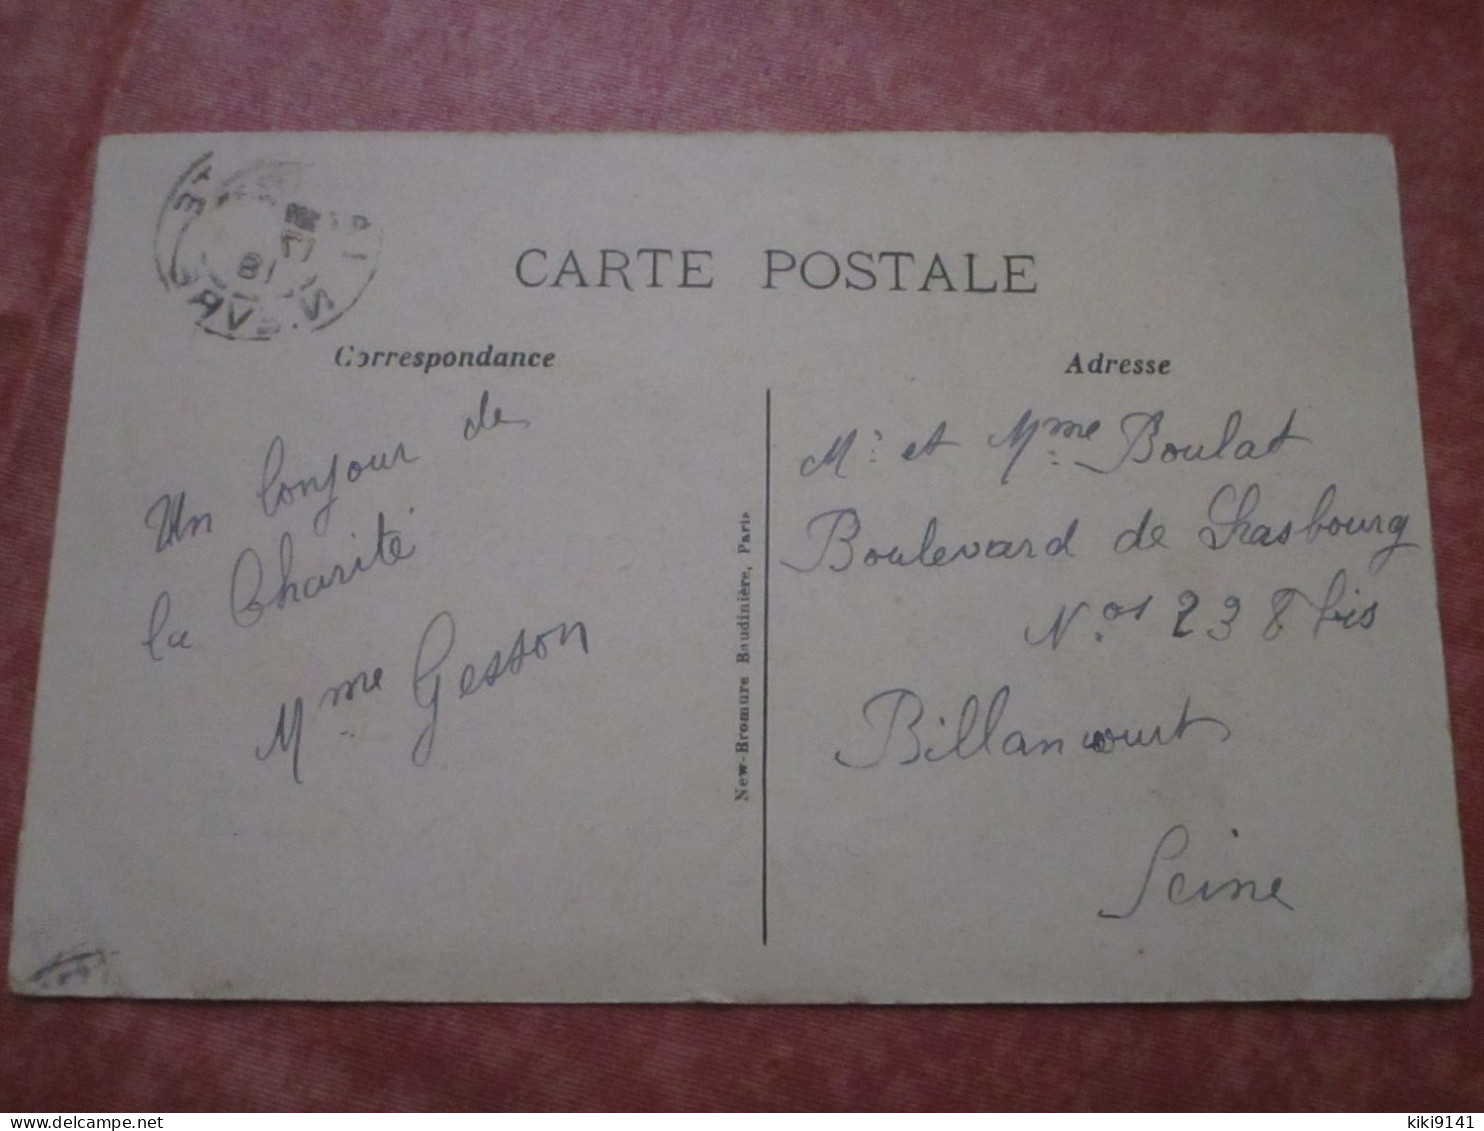 CARTE POSTALE
Correspondance
Un bonjour de
la Charité
Mme Gesson
New-Bromure Baudinière, Paris
Adresse
Mr et Mme Boulat
Boulevard de Strasbourg
N.os 238 bis
Billancourt
Seine
kiki9141
delcampe.net